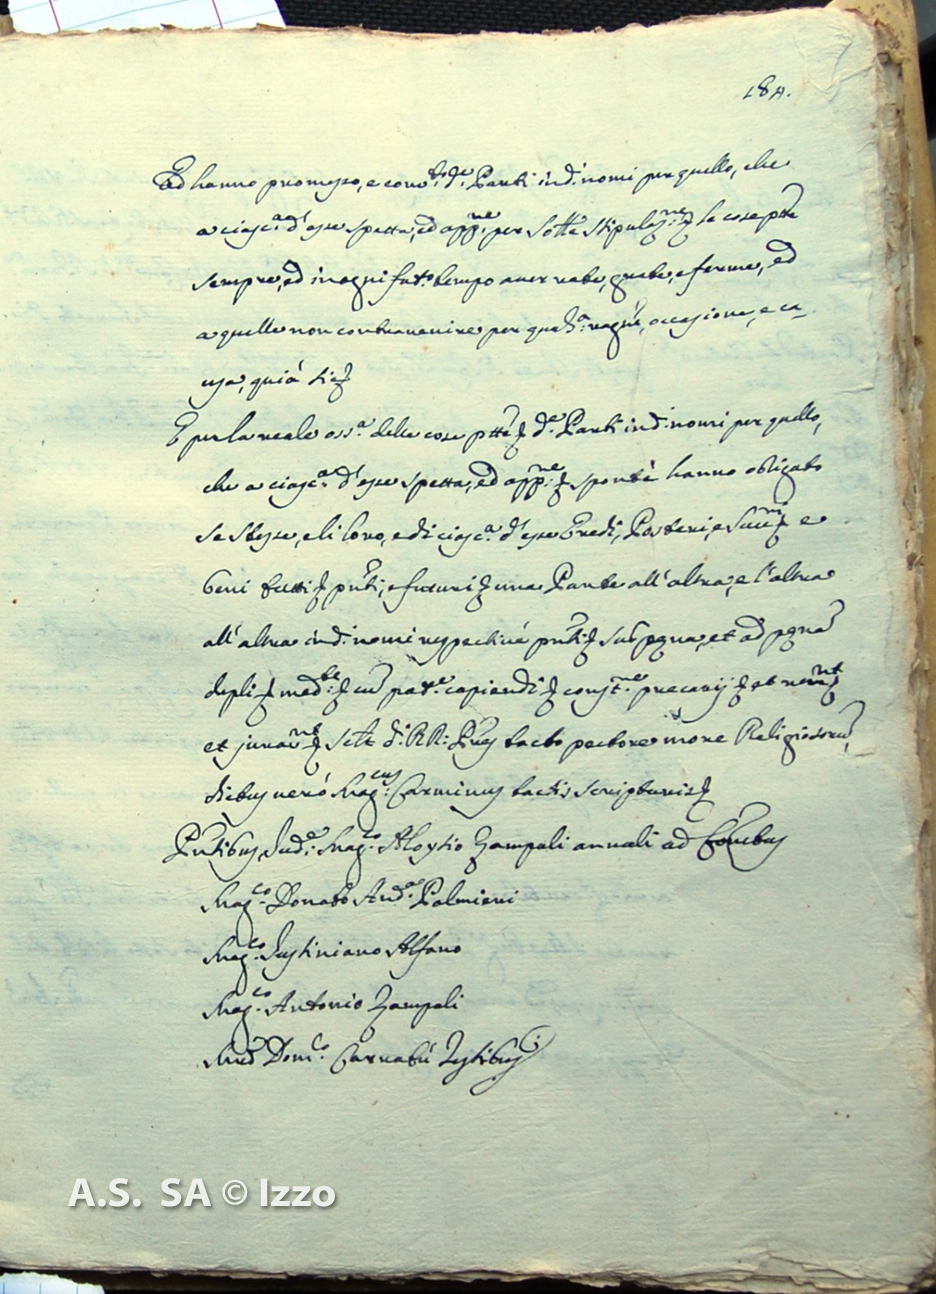 184.
Ed hanno promesso, e conv.to d.e Parti in d.i nomi per quello, che
a ciasc.a d'esse spetta, ed app.ne per sotto stipulaz.ne le cose p̃tte
sempre, ed in ogni fut.o tempo aver rate, grate, e ferme, ed
a quelle non contravenire per quals.a ragne, occasione, e ca-
usa, quià sic
E per la reale oss.a delle cose p̃tte d.e Parti in d.i nomi per quello,
che a ciasc.a d'esse spetta, ed app.ne spontè hanno obligato
se stesse, e li loro, e di ciasc.a d'esse Eredi, Posteri, e Succ.ri e
beni tutti p̃nti, e futuri una Parte all'altra, e l'altra
all'altra in d.i nomi respectivè p̃nti sub pęna, et ad pęna
dupli med.te cum pot.e capiendi const.ne precarij et ren.nt
et jurar.nt Scilt. d.i RR: P̃res tacto pectore more Religiosorum,
dictus verò Mag.cus Carminus tactis scripturis
P̃ntibus Jud.e Mag.co Aloysio Zampoli annali ad Contractus
Mag.co Donato And.a Palmieri
Mag.co Justiniano Alfano
Mag.co Antonio Zampoli
Mud. Dom.co Carnabù Testibus
A.S. SA © Izzo